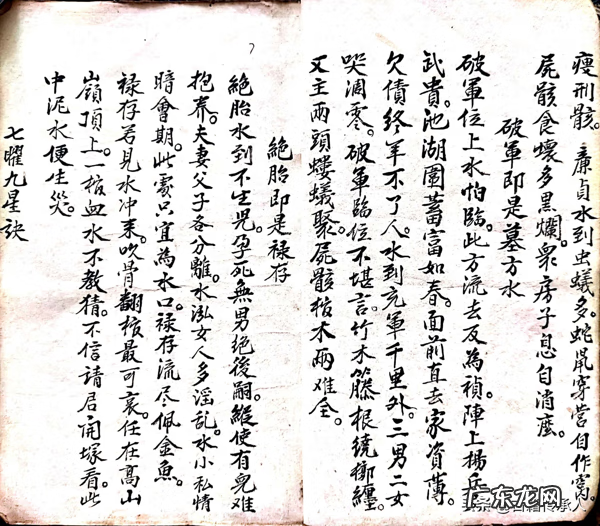 瘦刑骸。廉貞水到虫蟻多。蛇鼠穿营自作窩。
屍骸食壞多黑爛。衆房子息自消磨。
破軍即是墓方水
破軍位上水怕臨。此方流去反為禎。陣上楊兵
武貴。池湖圍蓄富如春。面前直去家資薄。
欠債終年不了人。水到充軍千里外。三男二女
哭凋零。破軍臨位不堪言。竹木籐根繞槨纏。
又主兩頭螻蟻聚。屍骸棺木兩难全。
絕胎即是禄存
絕胎水到不生児。孕死無男絕後嗣。縱使有兒难
抱养。夫妻父子各分離。水泓女人多淫乱。水小私情
暗會期。此處只宜為水口。禄存流尽佩金魚。
禄存若見水冲来。吹骨翻棺最可哀。任在高山
嶺頂上。一棺血水不教猜。不信請君開塚看。此
中泥水便生災。
七曜九星訣
古籍传承人
广东龙网